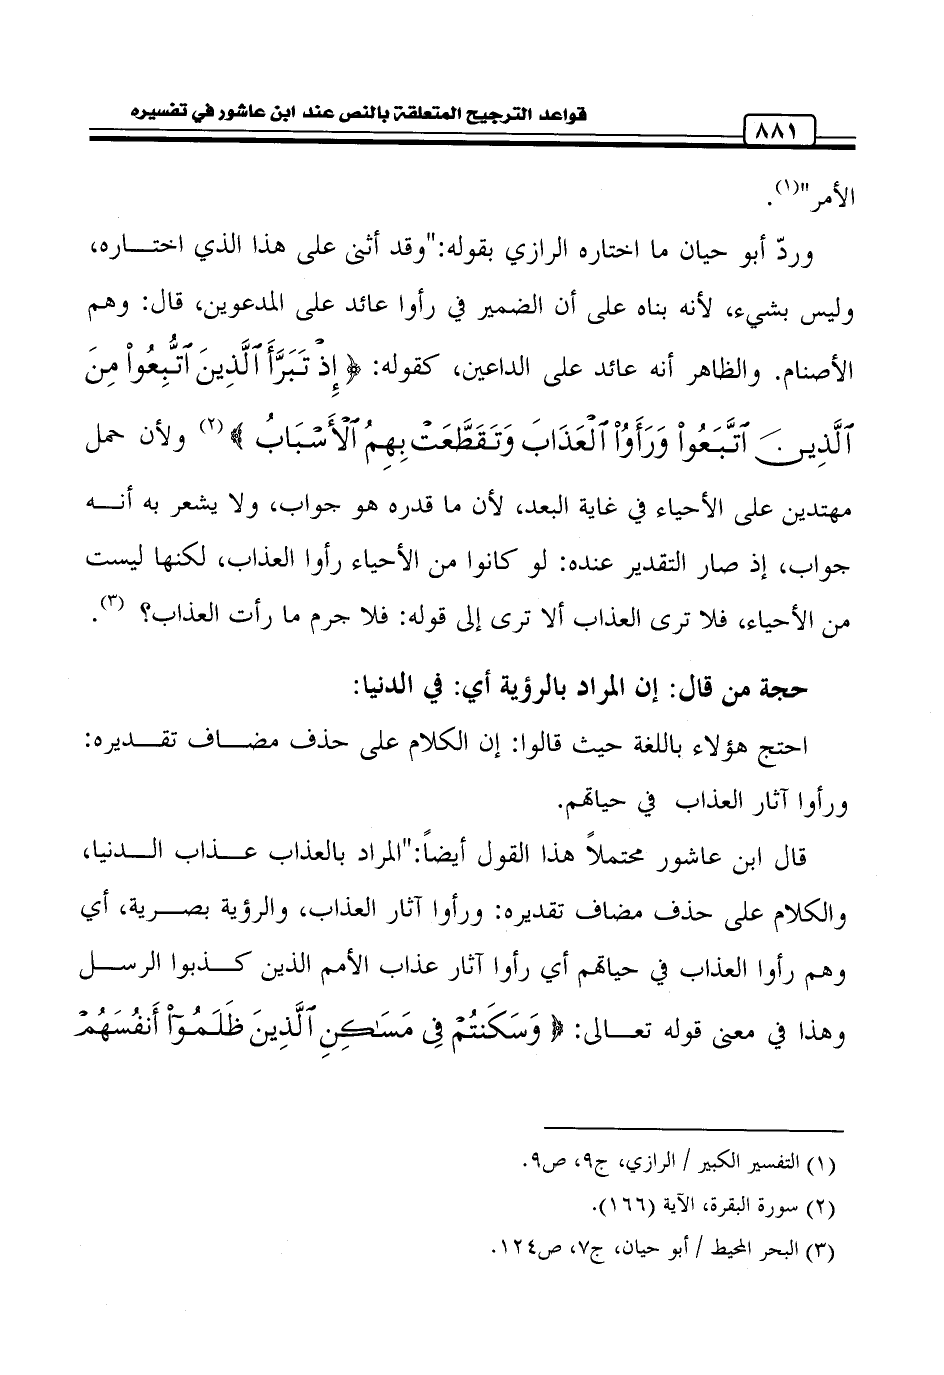 قواعد الترجيح المتعلقة بالنص عند ابن عاشور في تفسيره
٨٨١
الأمر"(١).
وردّ أبو حيان ما اختاره الرازي بقوله:"وقد أثنى على هذا الذي اختـــاره،
وليس بشيء، لأنه بناه على أن الضمير في رأوا عائد على المدعوين، قال: وهم
الأصنام. والظاهر أنه عائد على الداعين، كقوله: ﴿ إِذْ تَبَرَّأَ ٱلَّذِينَ ٱتُّبِعُوا۟ مِنَ
ٱلَّذِينَ ٱتَّبَعُوا۟ وَرَأَوُا۟ ٱلْعَذَابَ وَتَقَطَّعَتْ بِهِمُ ٱلْأَسْبَابُ ﴾(٢) ولأن حمل
مهتدين على الأحياء في غاية البعد، لأن ما قدره هو جواب، ولا يشعر به أنـــه
جواب، إذ صار التقدير عنده: لو كانوا من الأحياء رأوا العذاب، لكنها ليست
من الأحياء، فلا ترى العذاب ألا ترى إلى قوله: فلا جرم ما رأت العذاب؟ (٣).
حجة من قال: إن المراد بالرؤية أي: في الدنيا:
احتج هؤلاء باللغة حيث قالوا: إن الكلام على حذف مضـــاف تقـــديره:
ورأوا آثار العذاب في حياتهم.
قال ابن عاشور محتملاً هذا القول أيضاً:"المراد بالعذاب عـــذاب الـــدنيا،
والكلام على حذف مضاف تقديره: ورأوا آثار العذاب، والرؤية بصـــرية، أي
وهم رأوا العذاب في حياتهم أي رأوا آثار عذاب الأمم الذين كـــذبوا الرســـل
وهذا في معنى قوله تعـــالى: ﴿ وَسَكَنتُمْ فِى مَسَـٰكِنِ ٱلَّذِينَ ظَلَمُوٓا۟ أَنفُسَهُمْ
(١) التفسير الكبير / الرازي، ج٩، ص٩.
(٢) سورة البقرة، الآية (١٦٦).
(٣) البحر المحيط / أبو حيان، ج٧، ص١٢٤.